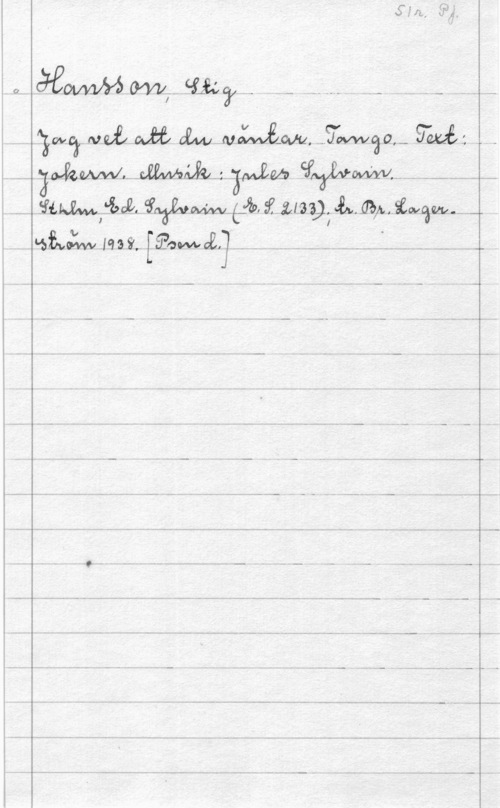 S1r. Pf.
Hansson, Stig
Jag vet att du väntar. Tango. Text:
Jokern. Musik: Jules Sylvain.
Sthlm, Ed. Sylvain (E. S. 2133), tr. Br. Lager-
ström 1938. [Pseud.]